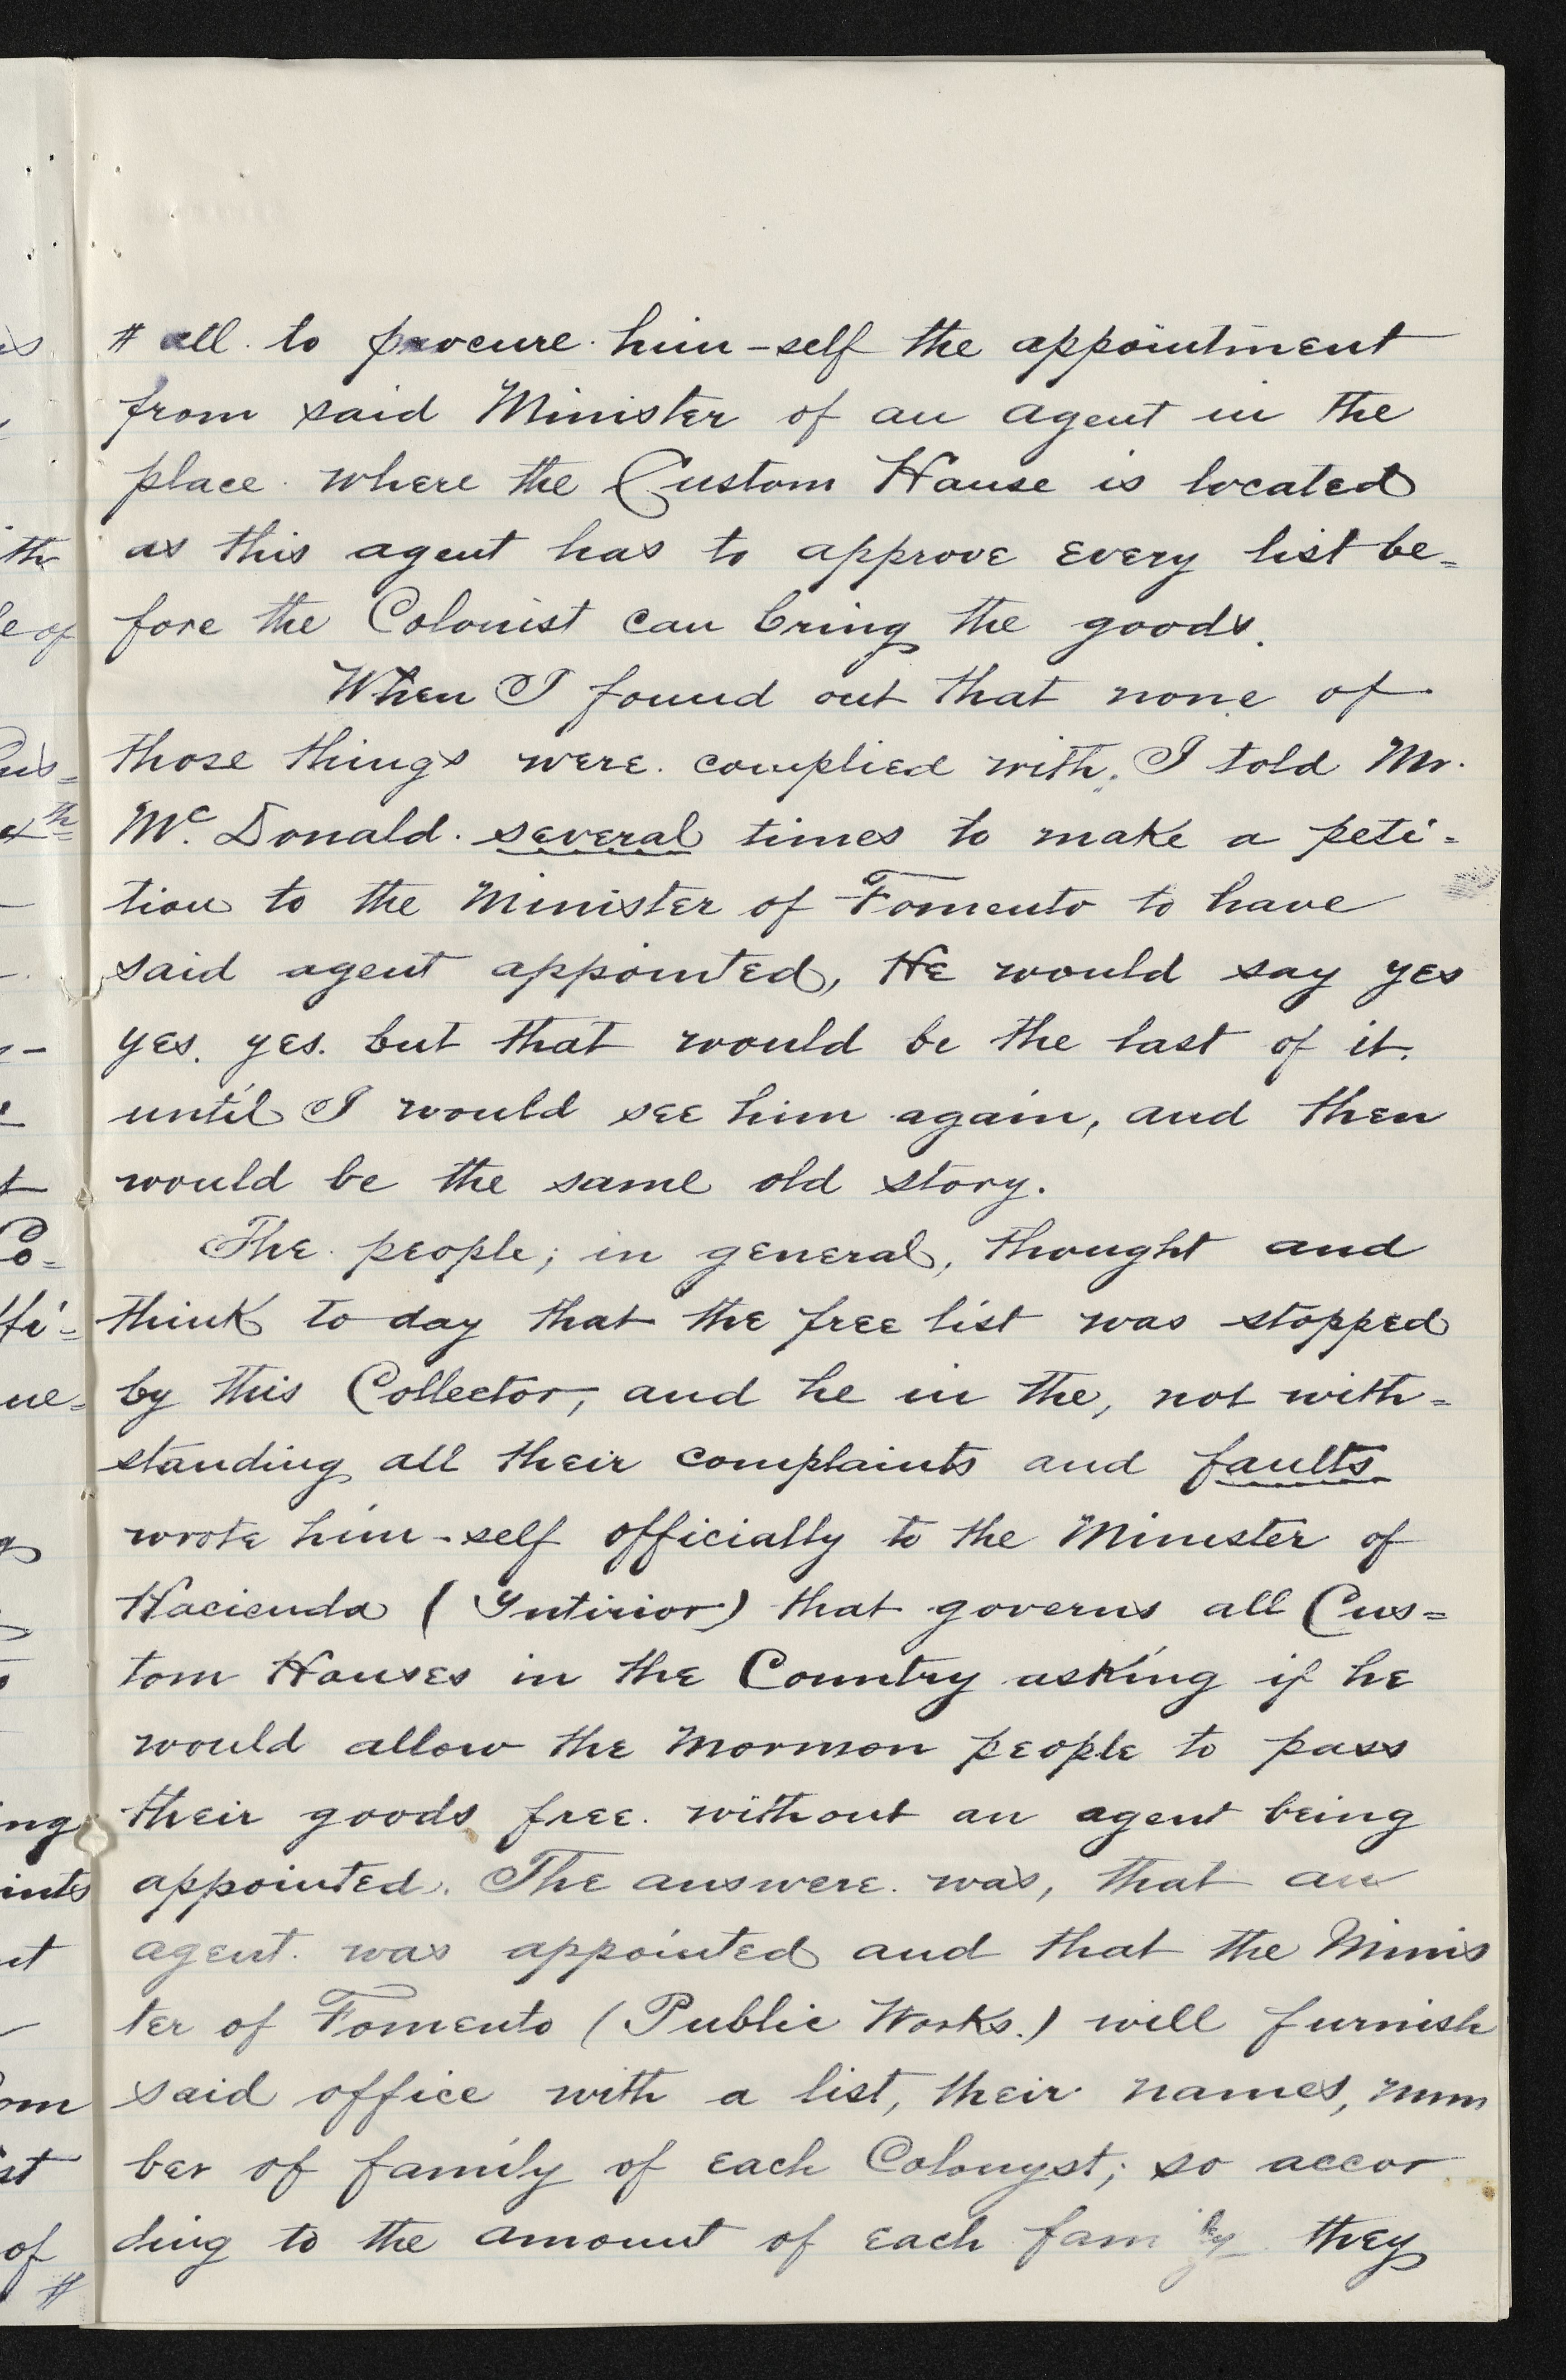 # all. to procure. him-self the appointment
from said Minister of an agent in the
place. where the Custom Hause is located
as this agent has to approve every list be=
fore the Colonist can bring the goods.
When I found out that none of
those things were. complied with. I told Mr.
Mc. Donald. several times to make a peti=
tion to the Minister of Fomento to have
said agent appointed, He would say yes
yes. yes. but that would be the last of it.
until I would see him again, and then
would be the same old story.
The. people; in general, thought and
think to day that the free list was stopped
by this Collector, and he in the, not with=
standing all their complaints and faults
wrote him-self officially to the Minister of
Hacienda (Yntirior) that governs all Cus=
tom Hauses in the Country asking if he
would allow the Mormon people to pass
their goods free. without an agent being
appointed. The answere. was, that an
agent. was appointed and that the Minis
ter of Fomento (Public Works.) will furnish
said office with a list, their names, num
ber of family of each Colonyst; so accor
ding to the amount of each family they